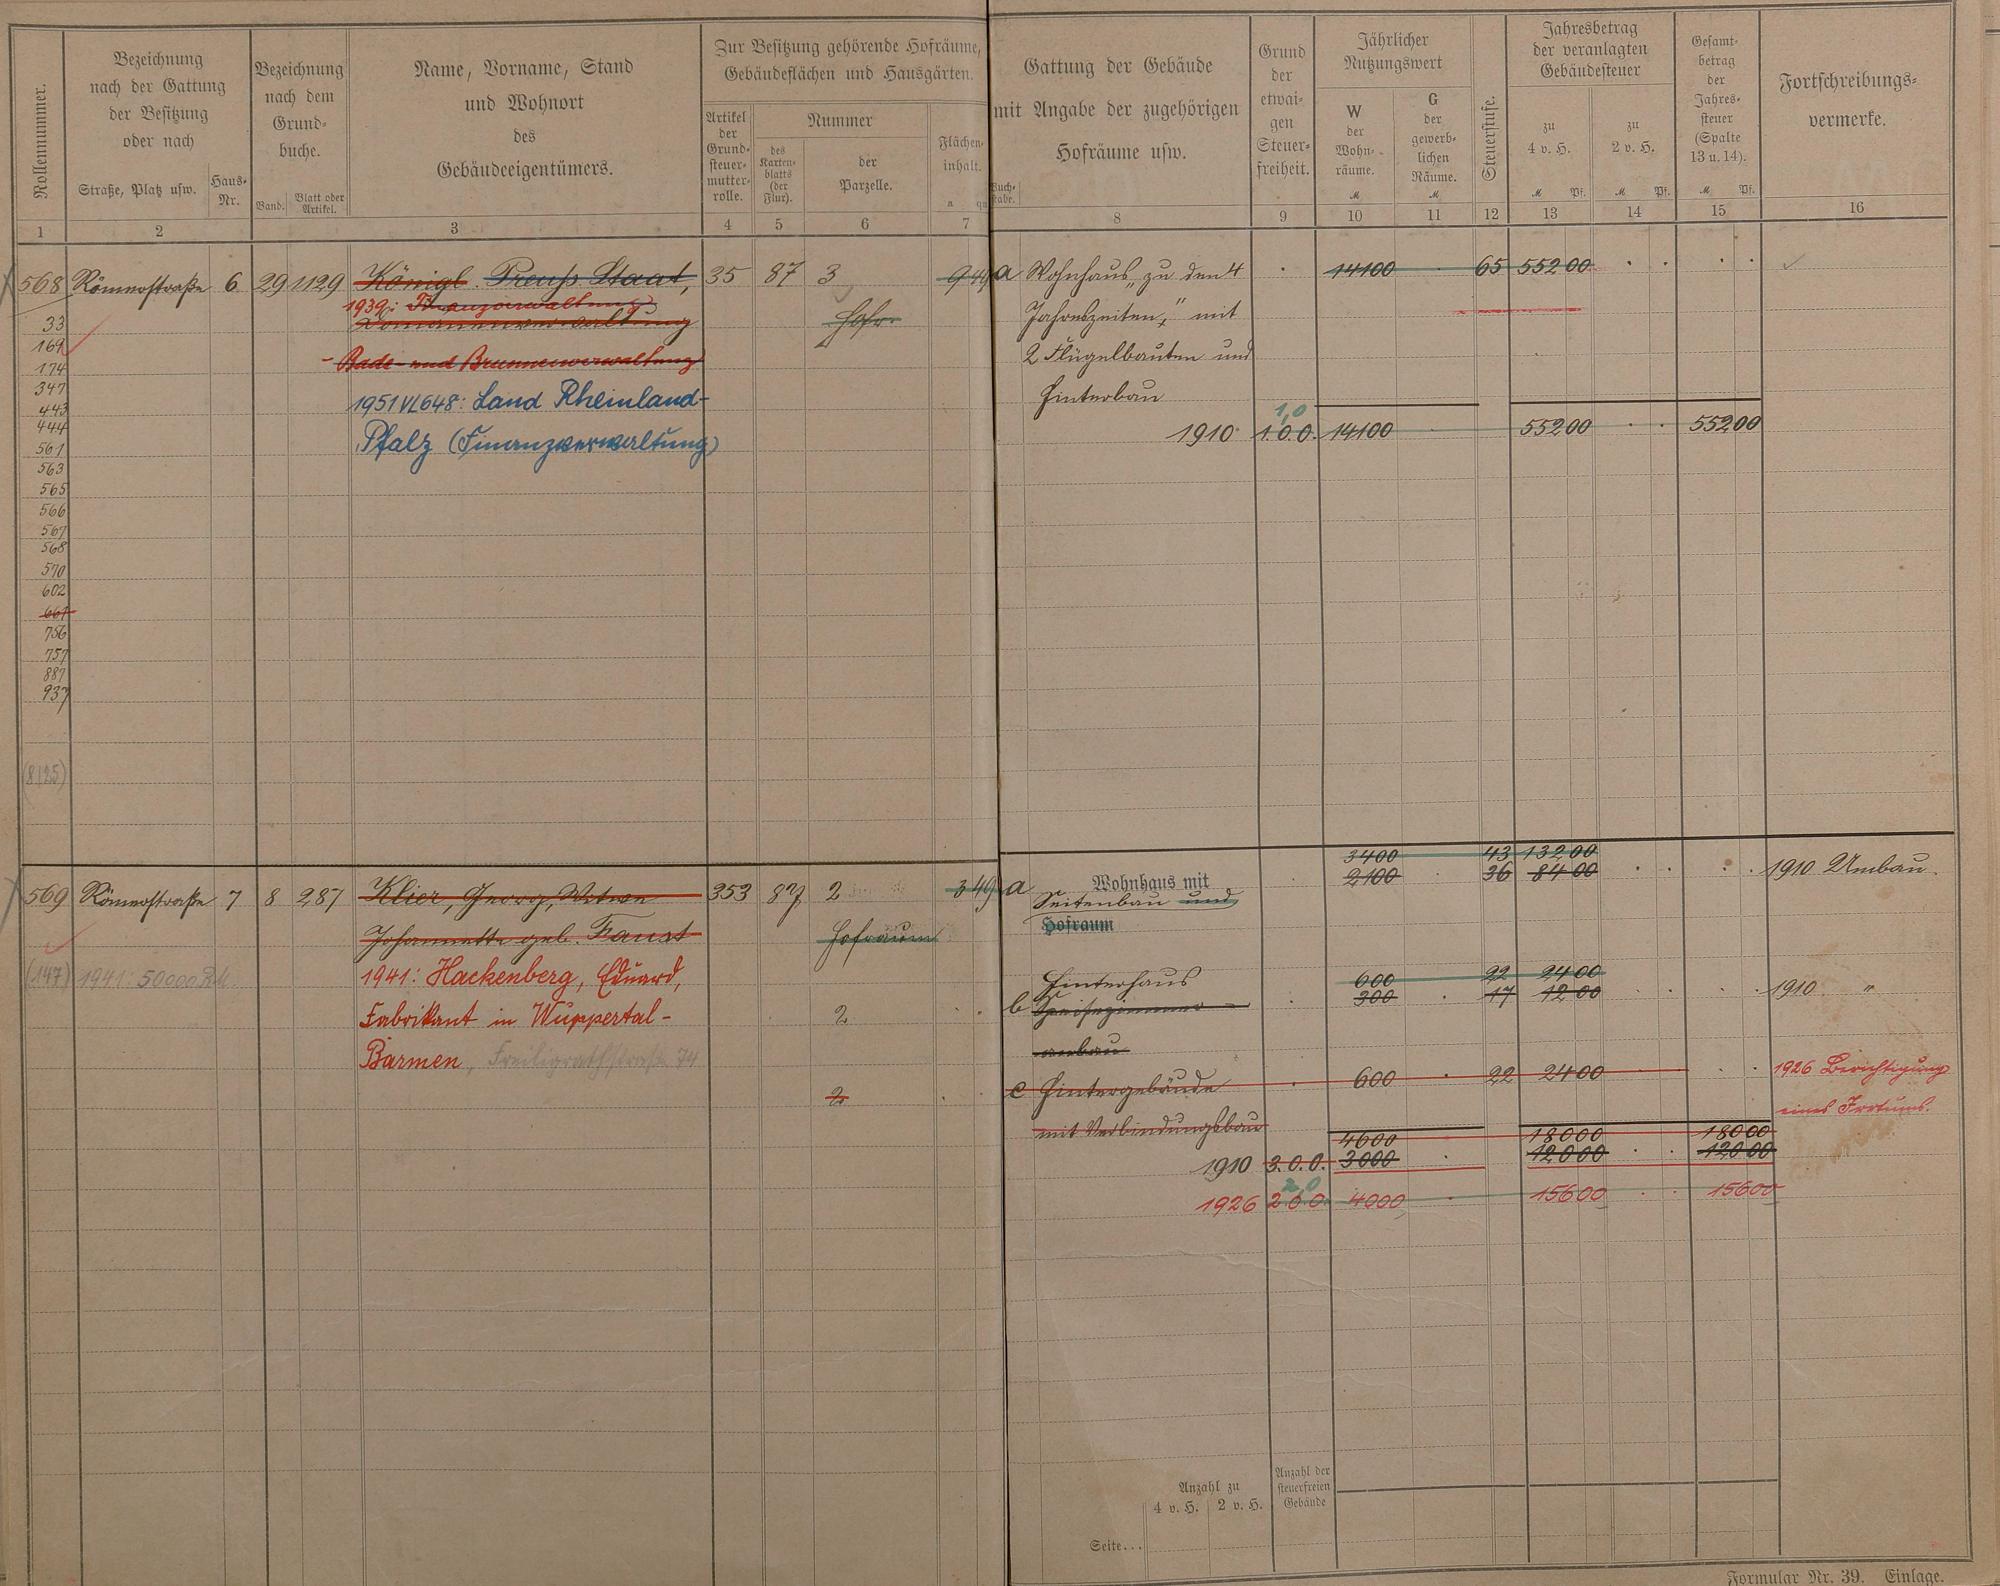 Rollennummer.
Bezeichnung
nach der Gattung
der Besitzung
oder nach
Straße, Platz usw.
Haus-
Nr.
Bezeichnung
nach dem
Grund-
buche.
Band.
Blatt oder
Artikel.
Name, Vorname, Stand
und Wohnort
des
Gebäudeeigentümers.
Zur Besitzung gehörende Hofräume,
Gebäudeflächen und Hausgärten.
Artikel
der
Grund-
steuer-
mutter-
rolle.
Nummer
des
Karten-
blatts
(der
Flur).
der
Parzelle.
Flächen-
inhalt.
a qm
Gattung der Gebäude
mit Angabe der zugehörigen
Hofräume usw.
Buch-
stabe.
Grund
der
etwai-
gen
Steuer-
freiheit.
Jährlicher
Nutzungswert
W
der
Wohn-
räume.
M
G
der
gewerb-
lichen
Räume.
M
Steuerstufe.
Jahresbetrag
der veranlagten
Gebäudesteuer
zu
4 v. H.
M Pf.
zu
2 v. H.
M Pf.
Gesamt-
betrag
der
Jahres-
steuer
(Spalte
13 u. 14).
M Pf.
Fortschreibungs-
vermerke.
1 2 3 4 5 6 7 8 9 10 11 12 13 14 15 16
568 Römerstraße 6 29 1129 Königl. Preuß Staat, 35 87 3 9 49 a Wohnhaus „zu den 4 14100 65 552 00
1939: Finanzverwaltung
33 Domänenverwaltung Hofr. Jahreszeiten," mit
169 - Bade- und Brunnenverwaltung 2 Flügelbauten und
174
347 1951 VL648: Land Rheinland- Hinterbau
443
444 Pfalz (Finanzverwaltung) 1910 1.0.0. 14100 552 00 552 00
1,0
561
563
565
566
567
568
570
602
661
756
757
887
937
(8125)
3400 43 132 00
569 Römerstraße 7 8 287 Klier, Georg, Witwe 353 87 2 3 49 a Wohnhaus mit 2100 36 84 00 1910 Umbau.
Seitenbau und
Johannette geb. Faust Hofraum Hofraum
(147) 1941: 50000 RM 1941: Hackenberg, Eduard, Hinterhaus 600 22 24 00
Fabrikant in Wuppertal- 2 b Speisezimmer- 300 17 12 00 1910 "
Barmen, Freiligrathstraße 74 anbau
2 c Hintergebäude 600 22 24 00 1926 Berichtigung
mit Verbindungsbau eines Irrtums.
4600 180 00 180 00
1910 3.0.0. 3000 120 00 120 00
2,0
1926 2.0.0. 4000 156 00 156 00
Anzahl zu
4 v. H. 2 v. H.
Anzahl der
steuerfreien
Gebäude
Seite...
Formular Nr. 39. Einlage.